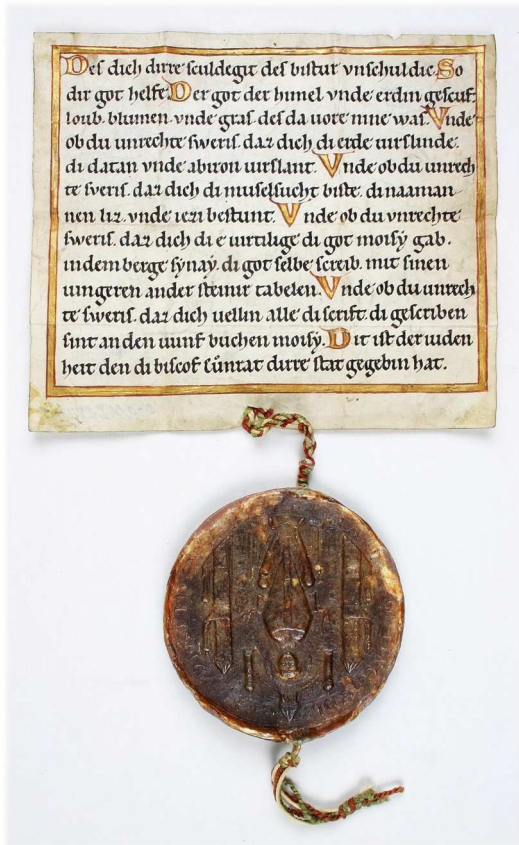 Des dich dirre sculdegit des bistur vnschuldic. So
dir got helfe. Der got der himel vnde erdin gescuf.
loub. blumen. vnde gras. des da uore nine was. Vnde
ob du unrechte sweris. daz dich di erde uirslinde.
di datan vnde abiron uirslant. Vnde ob du unrech
te sweris. daz dich di muselsucht biste. di naaman
nen liz. vnde iezi bestunt. Vnde ob du vnrechte
sweris. daz dich di e uirtilige di got moisy gab.
in dem berge synay. di got selbe screib. mit sinen
uingeren an der steinir tabelen. Vnde ob du unrech
te sweris. daz dich uellin alle di scrift. di gescriben
sint an den uunf buchen moisy. Dit ist der iuden
heit den di biscof Cůnrat dirre stat gegebin hat.